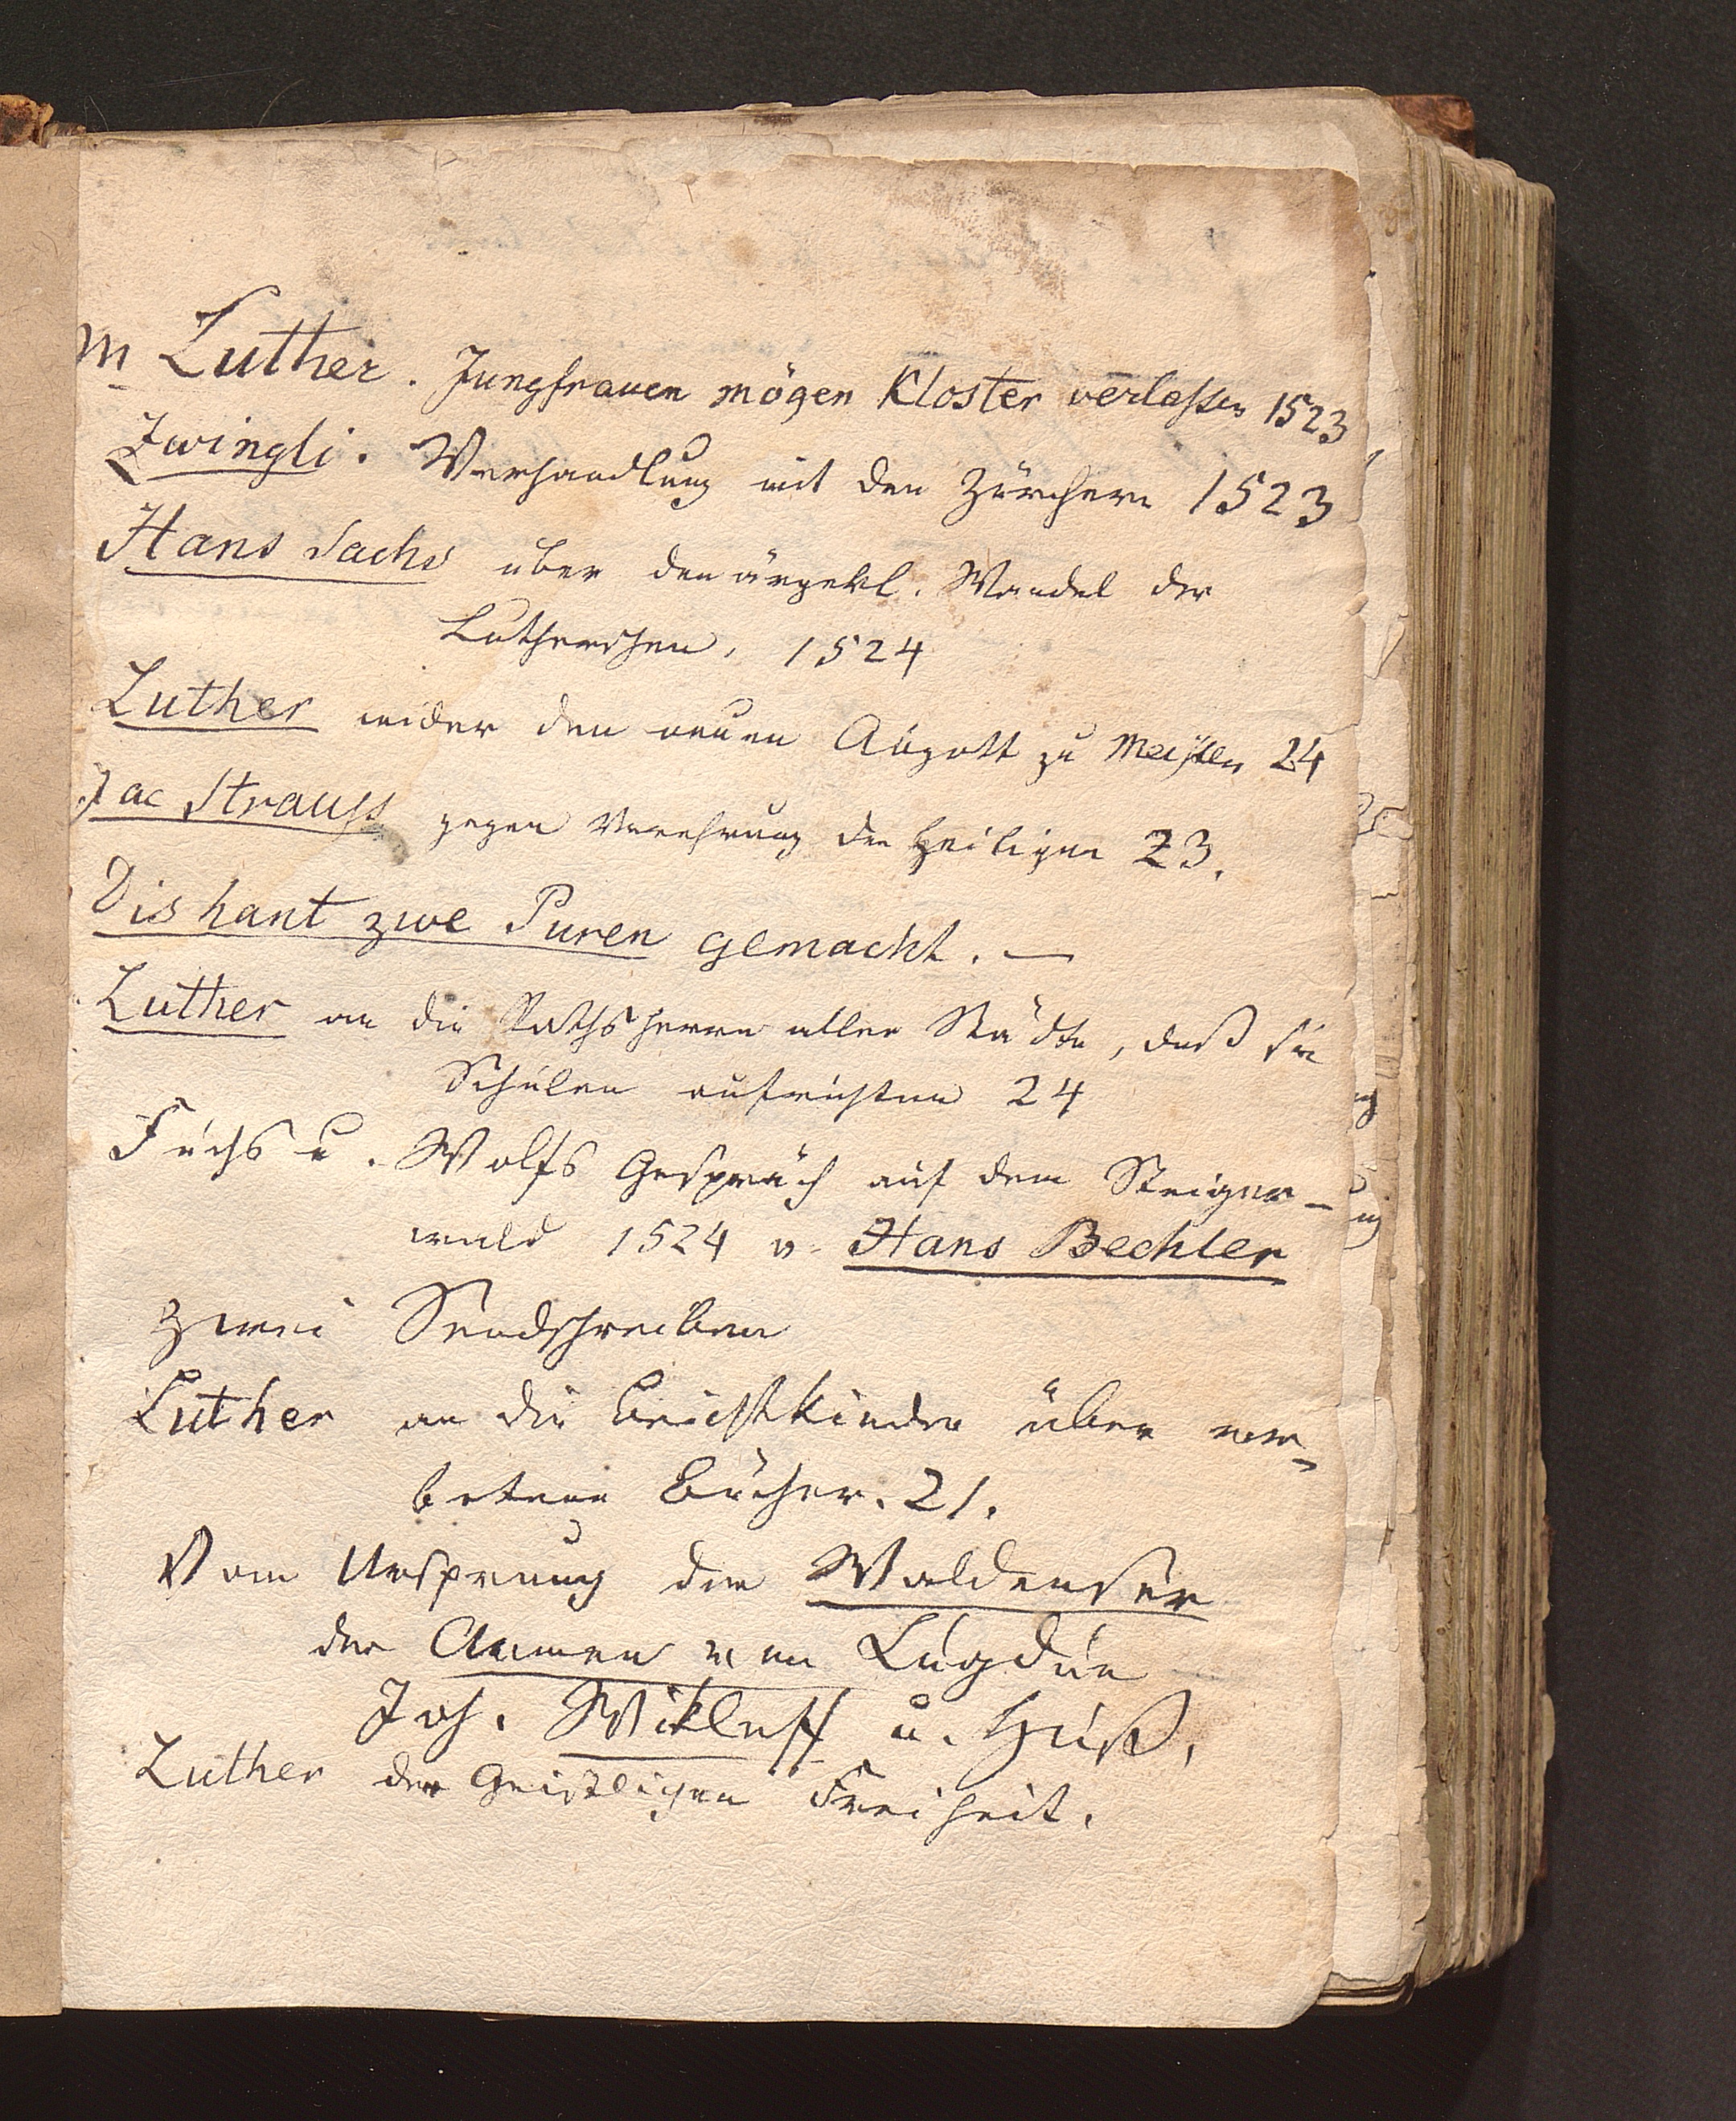 M Luther. Jungfrauen mögen Kloster verlassen 1523
Zwingli. Verhandlung mit den Zürchern 1523
Hans Sachs über den ärgerl. Wandel der
Lutherschen, 1524
Luther wider den neuen Abgott zu Meissen 24
Jac Strauss gegen Verehrung der Heiligen 23.
Dis hant zwe Puren gemacht. —
Luther an die Rathsherrn aller Städte, daß sie
Schulen aufrichten 24
Fuchs u. Wolfs Gespräch auf dem Steiger-
wald 1524 v. Hans Bechler
Zwei Sendschreiben
Luther an die Beichtkinder über ver-
botene Bücher. 21.
Vom Ursprung der Waldenser
der Armen von Lugdun
Joh. Wikleff u. Huß.
Luther der Geistlichen Freiheit.